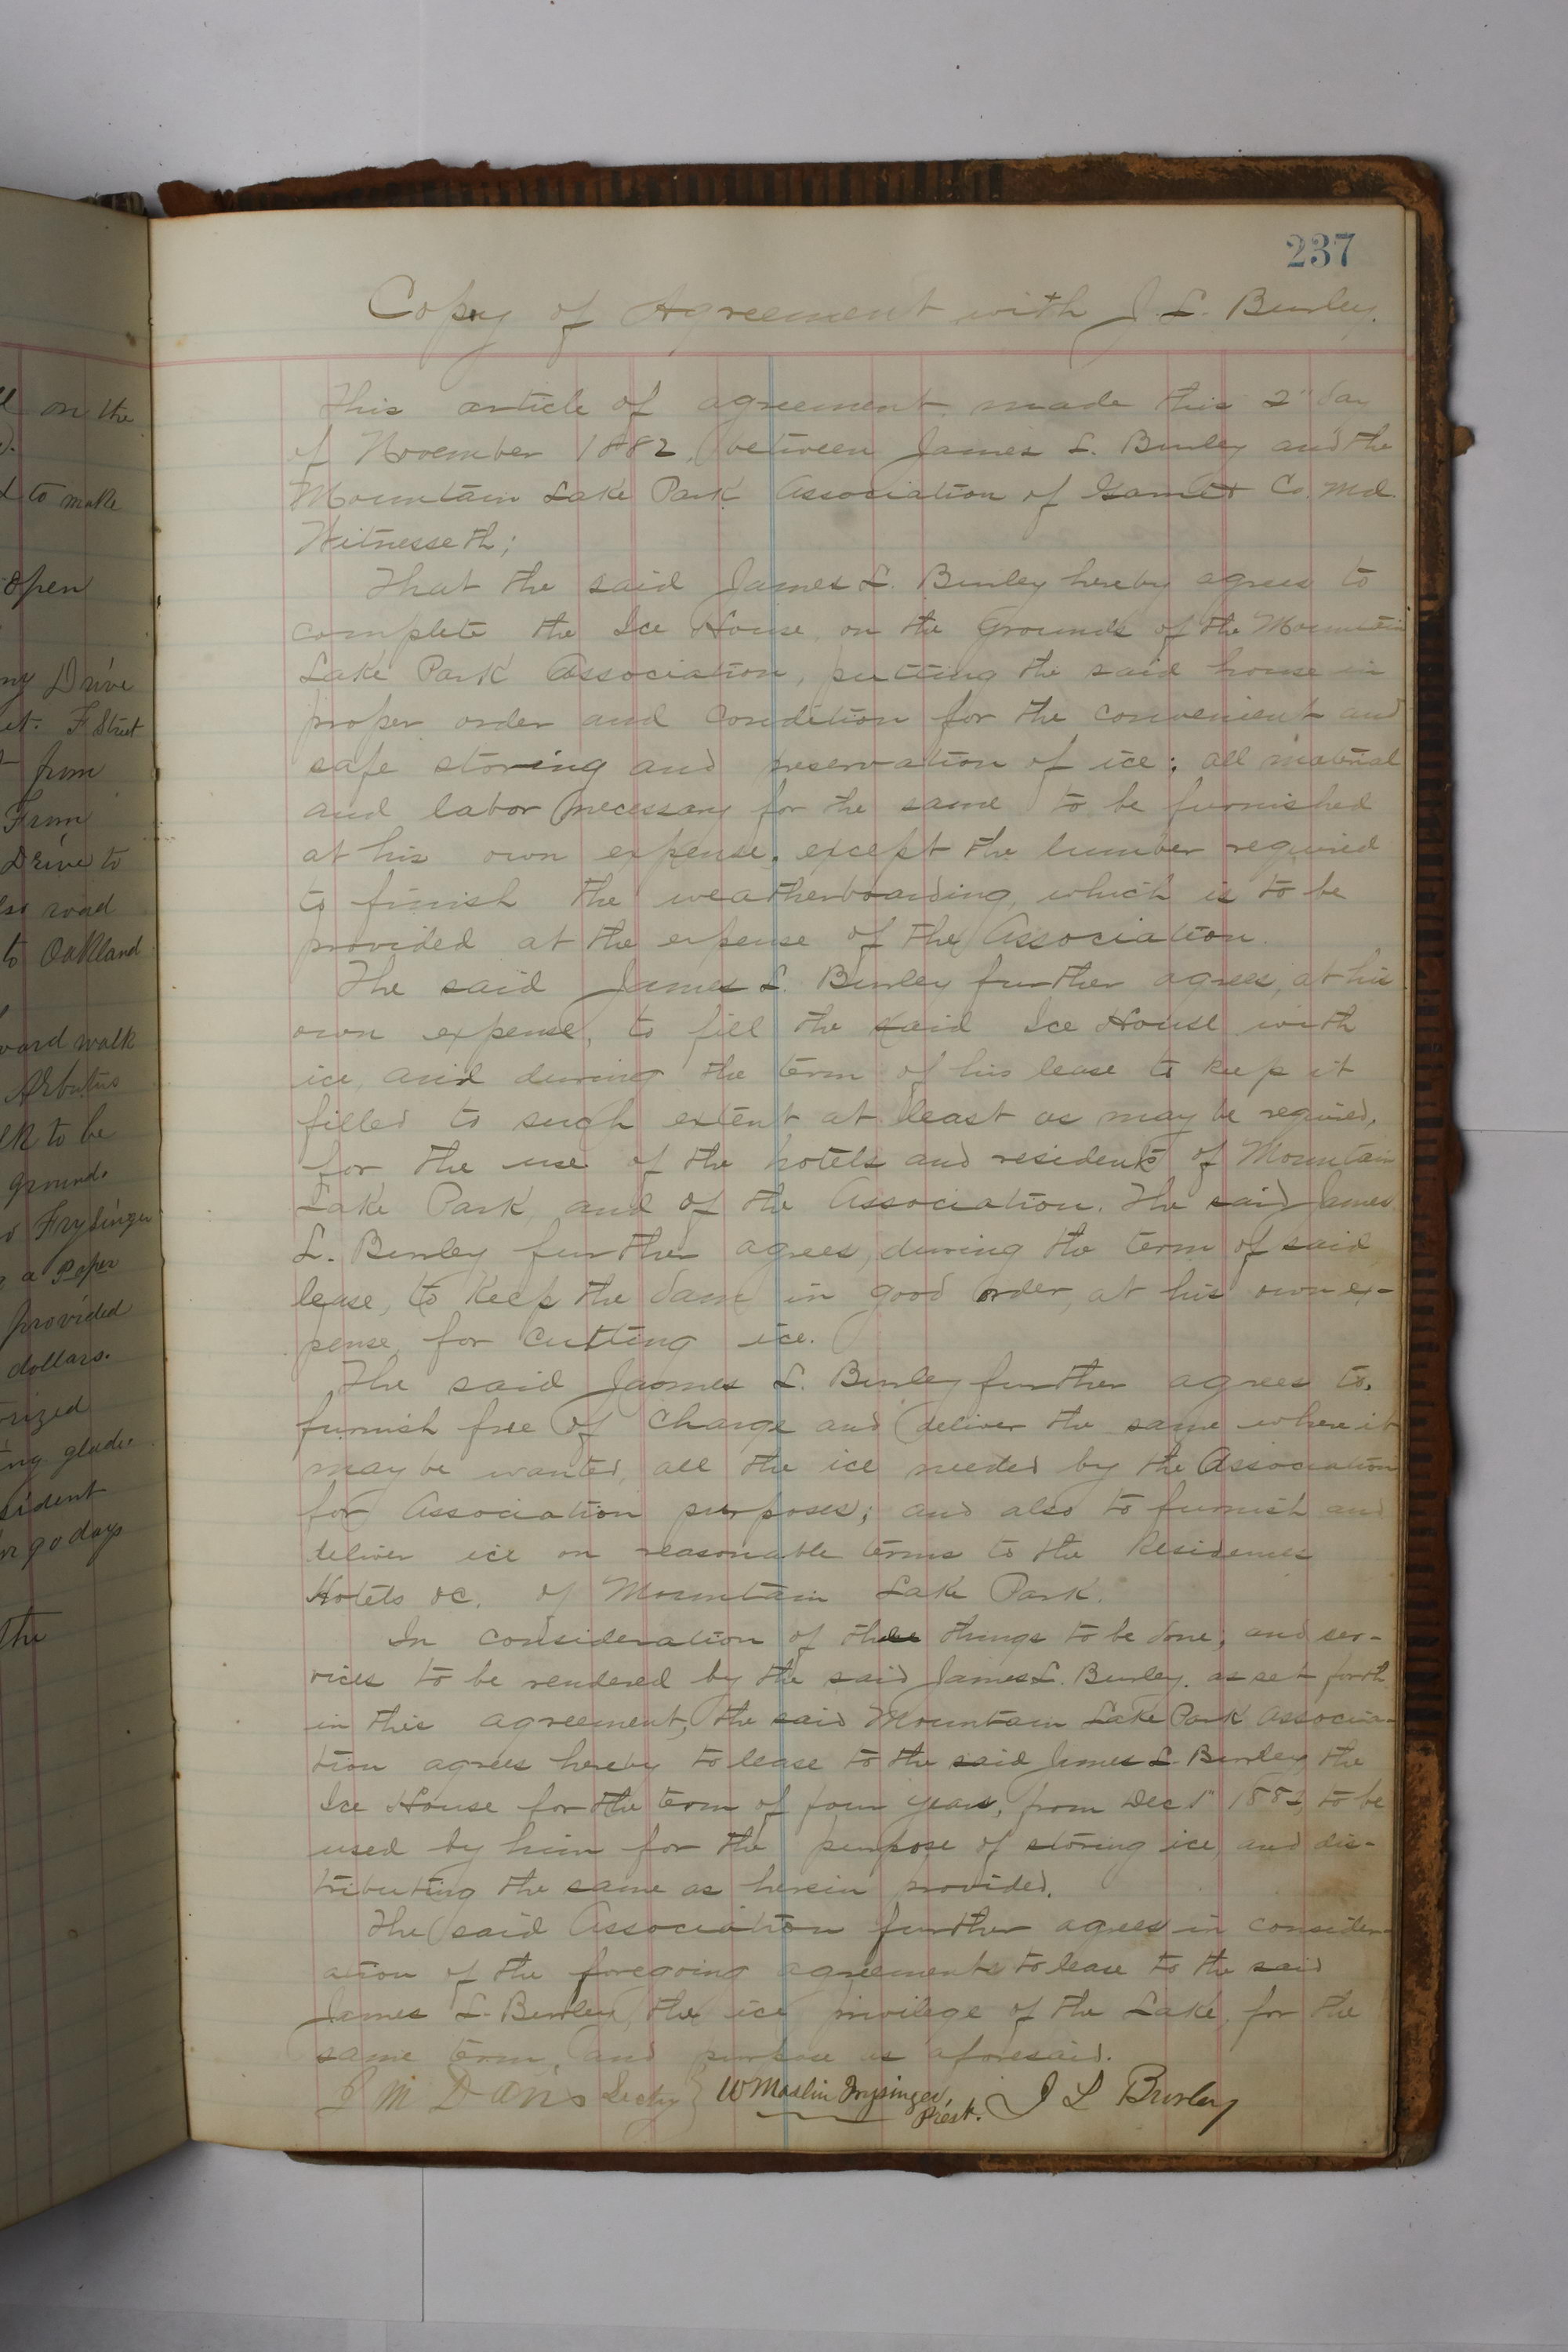 237
Copy of Agreement with J. L. Burley.
This article of agreement made this 2" day
of November 1882, between James L. Burley and the
Mountain Lake Park Association of Garrett Co. Md.
Witnesseth;
That the said James L. Burley hereby agrees to
complete the Ice House, on the Grounds of the Mountain
Lake Park Association, putting the said house in
proper order and condition for the convenient and
safe storing and preservation of ice; all material
and labor necessary for the same to be furnished
at his own expense, except the lumber required
to finish the weatherboarding, which is to be
provided at the expense of the Association.
The said James L. Burley further agrees, at his
own expense, to fill the said Ice House with
ice, and during the term of his lease to keep it
filled to such extent at least as may be required,
for the use of the hotels and residents of Mountain
Lake Park, and of the Association. The said James
L. Burley further agrees, during the term of said
lease, to keep the dam in good order, at his own ex-
pense, for cutting ice.
The said James L. Burley further agrees to,
furnish free of charge and deliver the same where it
may be wanted, all the ice needed by the Association
for Association purposes; and also to furnish and
deliver ice on reasonable terms to the Residences
Hotels &c. of Mountain Lake Park.
In consideration of these things to be done, and ser-
vices to be rendered by the said James L. Burley, as set forth
in this agreement, the said Mountain Lake Park Associa-
tion agrees hereby to lease to the said James L. Burley the
Ice House for the term of four years, from Dec 1" 1882 to be
used by him for the purpose of storing ice, and dis-
tributing the same as herein provided.
The said Association further agrees in consider-
ation of the foregoing agreements to lease to the said
James L. Burley, the ice privilege of the Lake, for the
same term, and purpose as aforesaid.
J M Davis Secty } W Maslin Frysinger, Prest. J L Burley
on the
to make
open
Drive
F Street
from
From
Drive to
road
to Oakland
walk
Arbutus
to be
ground.
Frysinger
a Paper
provided
dollars.
90 days
the